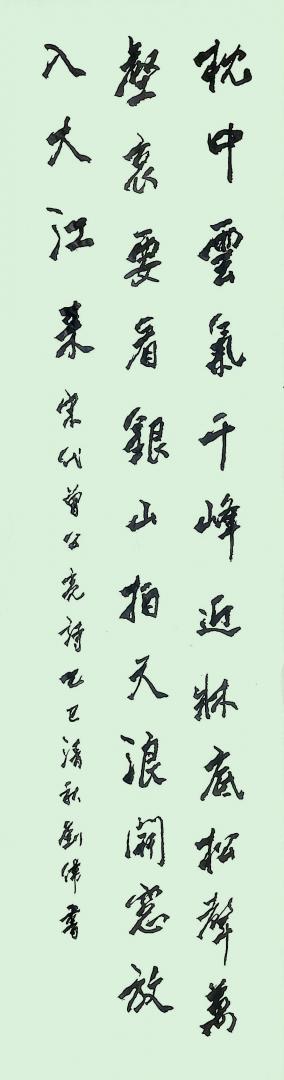 枕中雲氣千峰近牀底松聲萬
壑哀要看銀山拍天浪開窓放
入大江來宋代曾公亮詩乙巳清秋劉偉書